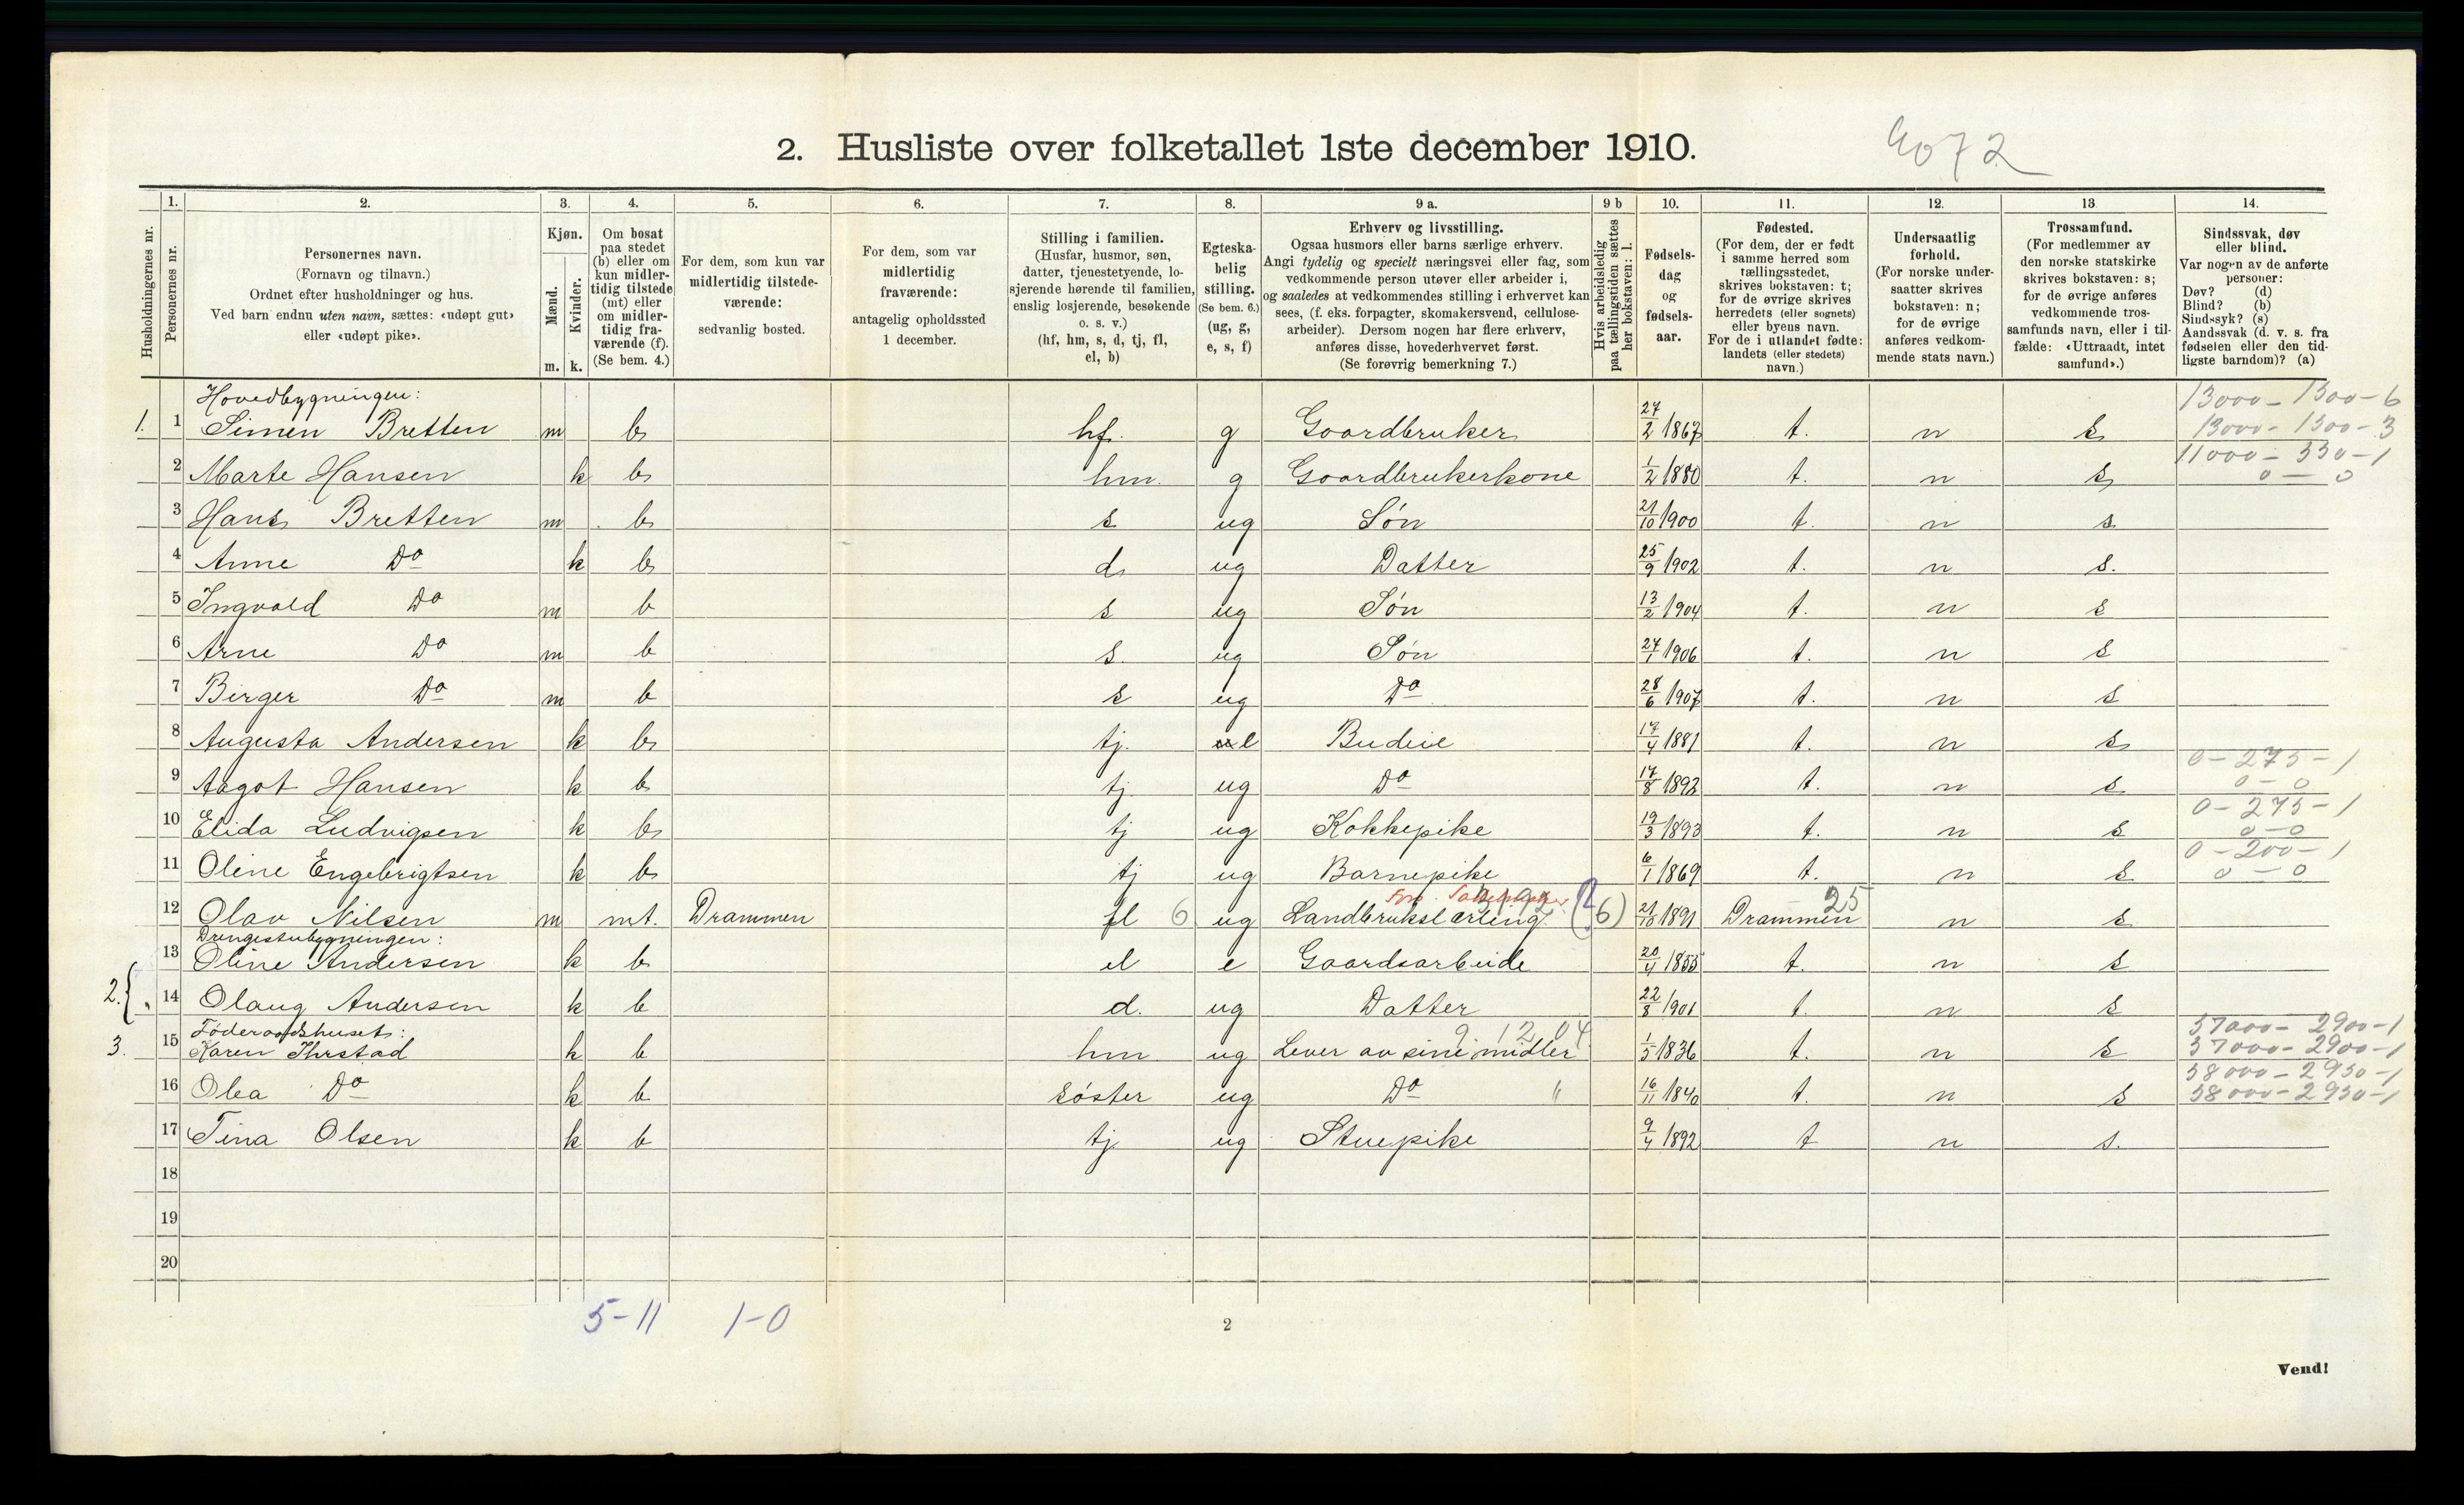 2. Husliste over folketallet 1ste december 1910.
4072
Husholdningernes nr.
1. Personernes nr.
2. Personernes navn. (Fornavn og tilnavn.) Ordnet efter husholdninger og hus. Ved barn endnu uten navn, sættes: «udøpt gut» eller «udøpt pike».
3. Kjøn. Mænd. m. Kvinder. k.
4. Om bosat paa stedet (b) eller om kun midlertidig tilstede (mt) eller om midlertidig fraværende (f). (Se bem. 4.)
5. For dem, som kun var midlertidig tilstedeværende: sedvanlig bosted.
6. For dem, som var midlertidig fraværende: antagelig opholdssted 1 december.
7. Stilling i familien. (Husfar, husmor, søn, datter, tjenestetyende, losjerende hørende til familien, enslig losjerende, besøkende o. s. v.) (hf, hm, s, d, tj, fl, el, b)
8. Egteskabelig stilling. (Se bem. 6.) (ug, g, e, s, f)
9 a. Erhverv og livsstilling. Ogsaa husmors eller barns særlige erhverv. Angi tydelig og specielt næringsvei eller fag, som vedkommende person utøver eller arbeider i, og saaledes at vedkommendes stilling i erhvervet kan sees, (f. eks. forpagter, skomakersvend, cellulosearbeider). Dersom nogen har flere erhverv, anføres disse, hovederhvervet først. (Se forøvrig bemerkning 7.)
9 b Hvis arbeidsledig paa tællingstiden sættes her bokstaven: l.
10. Fødselsdag og fødselsaar.
11. Fødested. (For dem, der er født i samme herred som tællingsstedet, skrives bokstaven: t; for de øvrige skrives herredets (eller sognets) eller byens navn. For de i utlandet fødte: landets (eller stedets) navn.)
12. Undersaatlig forhold. (For norske undersaatter skrives bokstaven: n; for de øvrige anføres vedkommende stats navn.)
13 Trossamfund. (For medlemmer av den norske statskirke skrives bokstaven: s; for de øvrige anføres vedkommende trossamfunds navn, eller i tilfælde: «Uttraadt, intet samfund».)
14. Sindssvak, døv eller blind. Var nogen av de anførte personer: Døv? (d) Blind? (b) Sindssyk? (s) Aandssvak (d. v. s. fra fødselen eller den tidligste barndom)? (a)
Hovedbygningen: 13000 - 1300 - 6
1. 1 Simen Bretten m b hf. g Goardbruker 27/2 1867 t. n s 13000 - 1300 - 3
2 Marte Hansen k b hm. g Goardbrukerkone 1/2 1880 t. n s 11000 - 330 - 1
0 — 0
3 Hans Bretten m b s ug Søn 21/10 1900 t. n s.
4 Anne Do k b d ug Datter 25/9 1902 t. n s.
5 Ingvald Do m b s ug Søn 13/2 1904 t. n s
6 Arne Do m b s. ug Søn 27/1 1906 t. n s
7 Birger Do m b s ug Do 28/6 1907 t. n s
8 Augusta Andersen k b tj. e Budeie 17/4 1881 t. n s
9 Aagot Hansen k b tj. ug Do 17/8 1892 t. n s 0 - 275 - 1
0 - 0
10 Elida Ludvigsen k b tj ug Kokkepike 19/3 1893 t. n s 0 - 275 - 1
0 - 0
11 Oline Engebrigtsen k b tj ug Barnepike 6/1 1869 t. n s 0 - 200 - 1
0 — 0
12 Olav Nilsen m mt. Drammen fl 6 ug Landbrukslærling (6) 21/10 1891 Drammen 25 n s
Drengestubygningen:
2. 13 Oline Andersen k b el e Gaardsarbeide 20/4 1855 t. n s
14 Olaug Andersen k b d. ug Datter 22/8 1901 t. n s
Føderaadshuset: 9 12 04 57000 - 2900 - 1
3. 15 Karen Ihrstad k b hm ug Lever av sine midler 1/5 1836 t. n s 57000 - 2900 - 1
16 Olea Do k b søster ug Do " 16/11 1840 t. n s 58000 - 2950 - 1
58000 - 2950 - 1
17 Tina Olsen k b tj ug Stuepike 9/4 1892 t n s.
18
19
20
5 - 11 1 - 0
2
Vend!